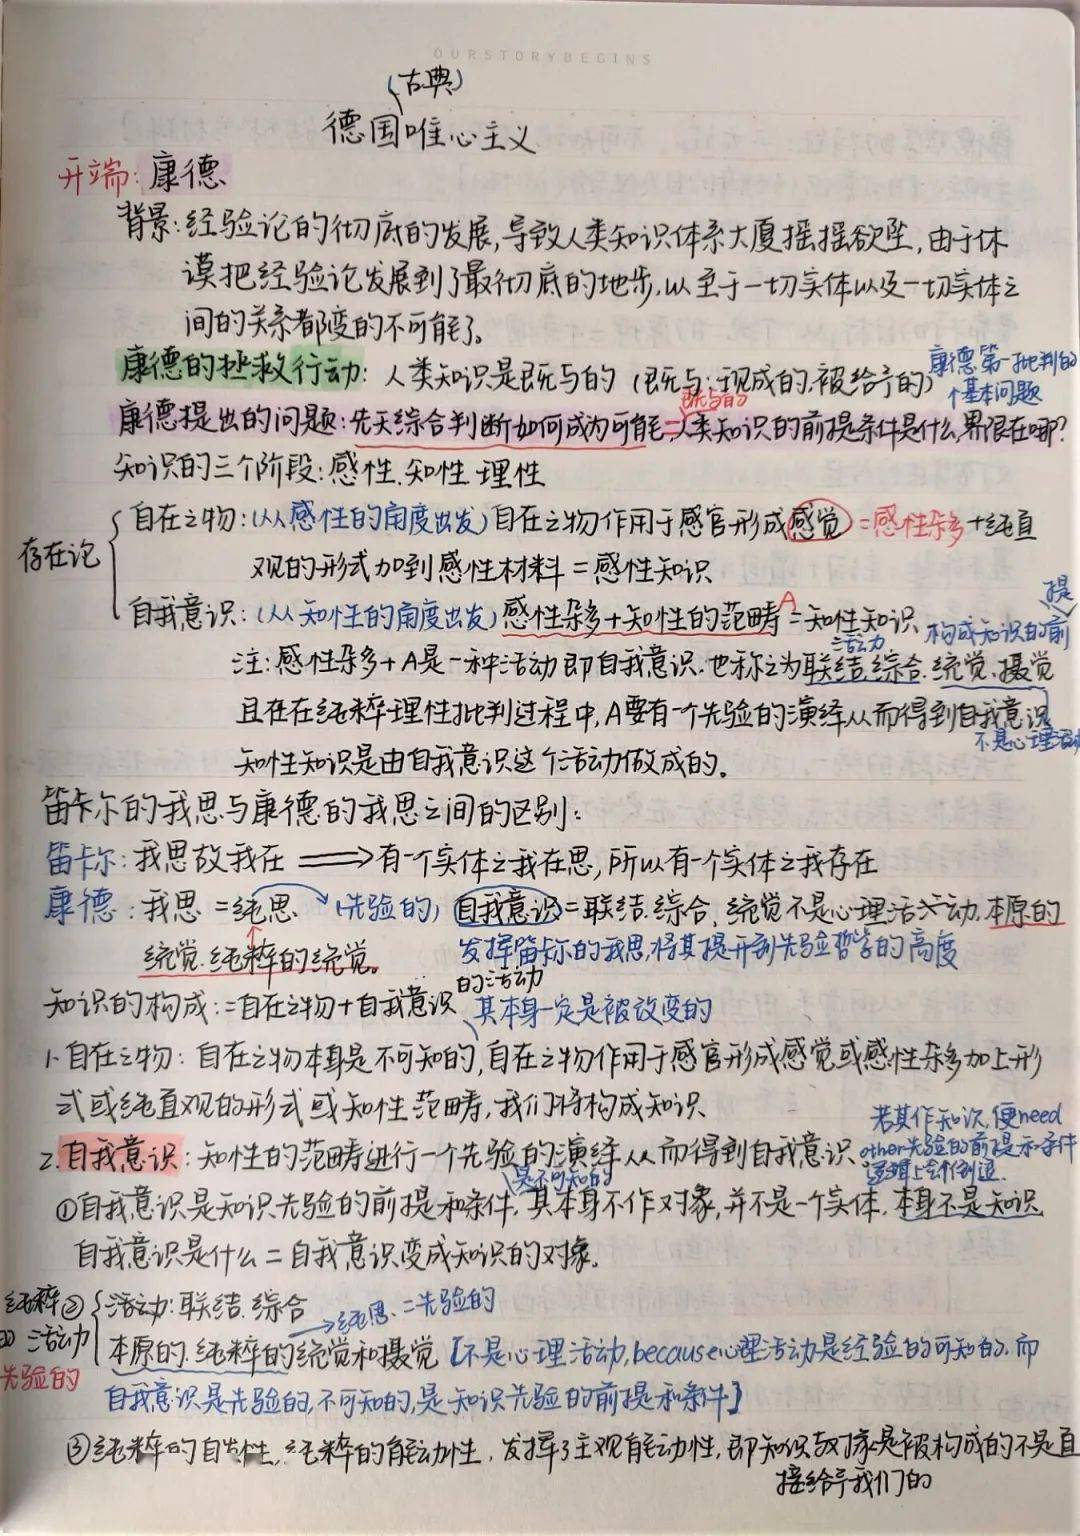 OURSTORYBEGINS
(古典)
德国唯心主义
开端:康德
背景:经验论的彻底的发展,导致人类知识体系大厦摇摇欲坠,由于休
谟把经验论发展到了最彻底的地步,以至于一切实体以及一切实体之
间的关系都变的不可能了。
康德的拯救行动:人类知识是既与的(既与:现成的,被给予的)
康德第一批判的
个基本问题
既与的
康德提出的问题:先天综合判断如何成为可能=人类知识的前提条件是什么,界限在哪?
知识的三个阶段:感性.知性.理性
存在论
自在之物:(从感性的角度出发)自在之物作用于感官形成感觉=感性杂多+纯直
观的形式加到感性材料=感性知识
自我意识:(从知性的角度出发)感性杂多+知性的范畴A=知性知识
活动
构成知识的前提
注:感性杂多+A是一种活动即自我意识.也称之为联结.综合.统觉、摄觉
且在在纯粹理性批判过程中,A要有一个先验的演绎从而得到自我意识
不是心理活动
知性知识是由自我意识这个活动做成的。
笛卡尔的我思与康德的我思之间的区别:
笛卡尔:我思故我在⟹有一个实体之我在思,所以有一个实体之我存在
康德:我思=纯思→(先验的)自我意识=联结.综合、统觉不是心理活动.本原的
统觉.纯粹的统觉。
发挥笛卡尔的我思,将其提升到先验哲学的高度
知识的构成:=自在之物+自我意识的活动
其本身一定是被改变的
1.自在之物:自在之物本身是不可知的,自在之物作用于感官形成感觉或感性杂多加上形
式或纯直观的形式或知性范畴,我们将构成知识
2.自我意识:知性的范畴进行一个先验的演绎从而得到自我意识
若其作知识,便need
other先验的前提和条件
逻辑上会作倒退.
是不可知的
①自我意识是知识先验的前提和条件.其本身不作对象,并不是一个实体.本身不是知识
自我意识是什么=自我意识变成知识的对象。
纯粹②
活动
先验的
活动:联结.综合
→纯思.=先验的
本原的.纯粹的统觉和摄觉【不是心理活动,because心理活动是经验的可知的.而
自我意识是先验的,不可知的,是知识先验的前提和条件】
③纯粹的自发性,纯粹的能动性,发挥了主观能动性,即知识对象是被构成的不是直
接给予我们的